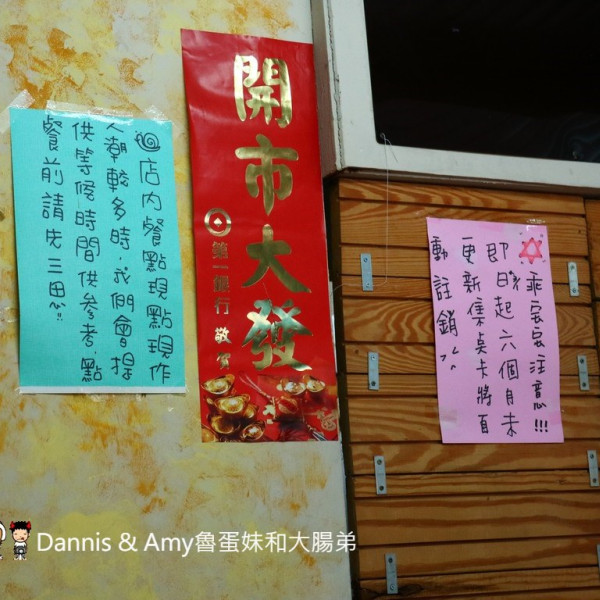 店內餐點現點現作
人潮較多時,我們會提
供等候時間供參考,點
餐前請先三思!!
開市大發
第一銀行 敬賀
乖宝宝注意!!!
即日起六個月未
更新集奌卡將自
動註銷^^
Dannis & Amy魯蛋妹和大腸弟